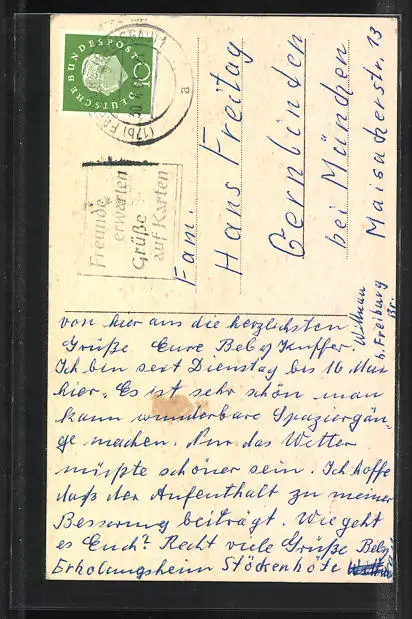 DEUTSCHE BUNDESPOST
(17b) FREIBURG
Freunde
erwarten
Grüße
auf Karten
Fam.
Hans Freitag
Gernlinden
bei München
Maisacherstr. 13
Wittnau
b. Freiburg
Br.
von hier aus die herzlichsten
Grüße Eure Beby Kuffer.
Ich bin seit Dienstag bis 16. Mai
hier. Es ist sehr schön man
kann wunderbare Spaziergän-
ge machen. Nur das Wetter
müßte schöner sein. Ich hoffe
daß der Aufenthalt zu meiner
Besserung beiträgt. Wie geht
es Euch? Recht viele Grüße Beby
Erholungsheim Stöckenhöfe